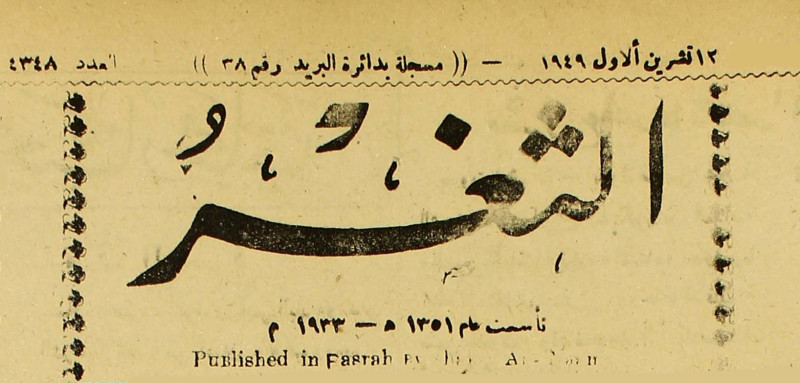 ١٢ تشرين ألاول ١٩٤٩ — (( مسجلة بدائرة البريد رقم ٣٨ )) العدد ٤٣٤٨
الثغر
تأسست عام ١٣٥١ ه — ١٩٣٣ م
Published in Basrah